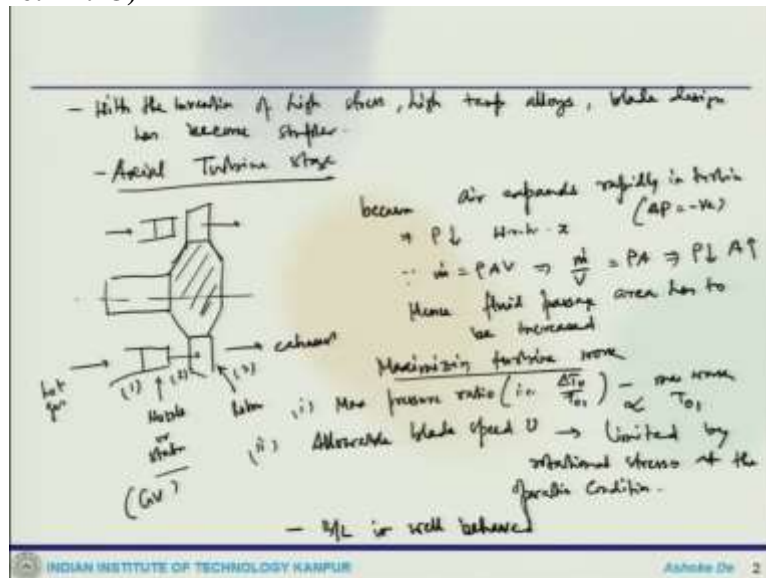 - With the invention of high stress, high temp alloys, blade design
has become simpler.
- Axial Turbine stage
because air expands rapidly in turbine
(ΔP = -ve)
⇒ ρ↓ w.r.t. x
∵ ṁ = ρAV ⇒ ṁ/V = ρA ⇒ ρ↓ A↑
Hence fluid passage area has to
be increased
exhaust
hot
gas
(1) (2) (3)
Nozzle
or
stator
(GV)
Rotor
Maximizing turbine work
(i) Max pressure ratio (i.e. ΔT₀/T₀₁) - max work
∝ T₀₁
(ii) Allowable blade speed U → limited by
rotational stress at the
operatin condition.
- B/L is well behaved
INDIAN INSTITUTE OF TECHNOLOGY KANPUR
Ashoke De 2